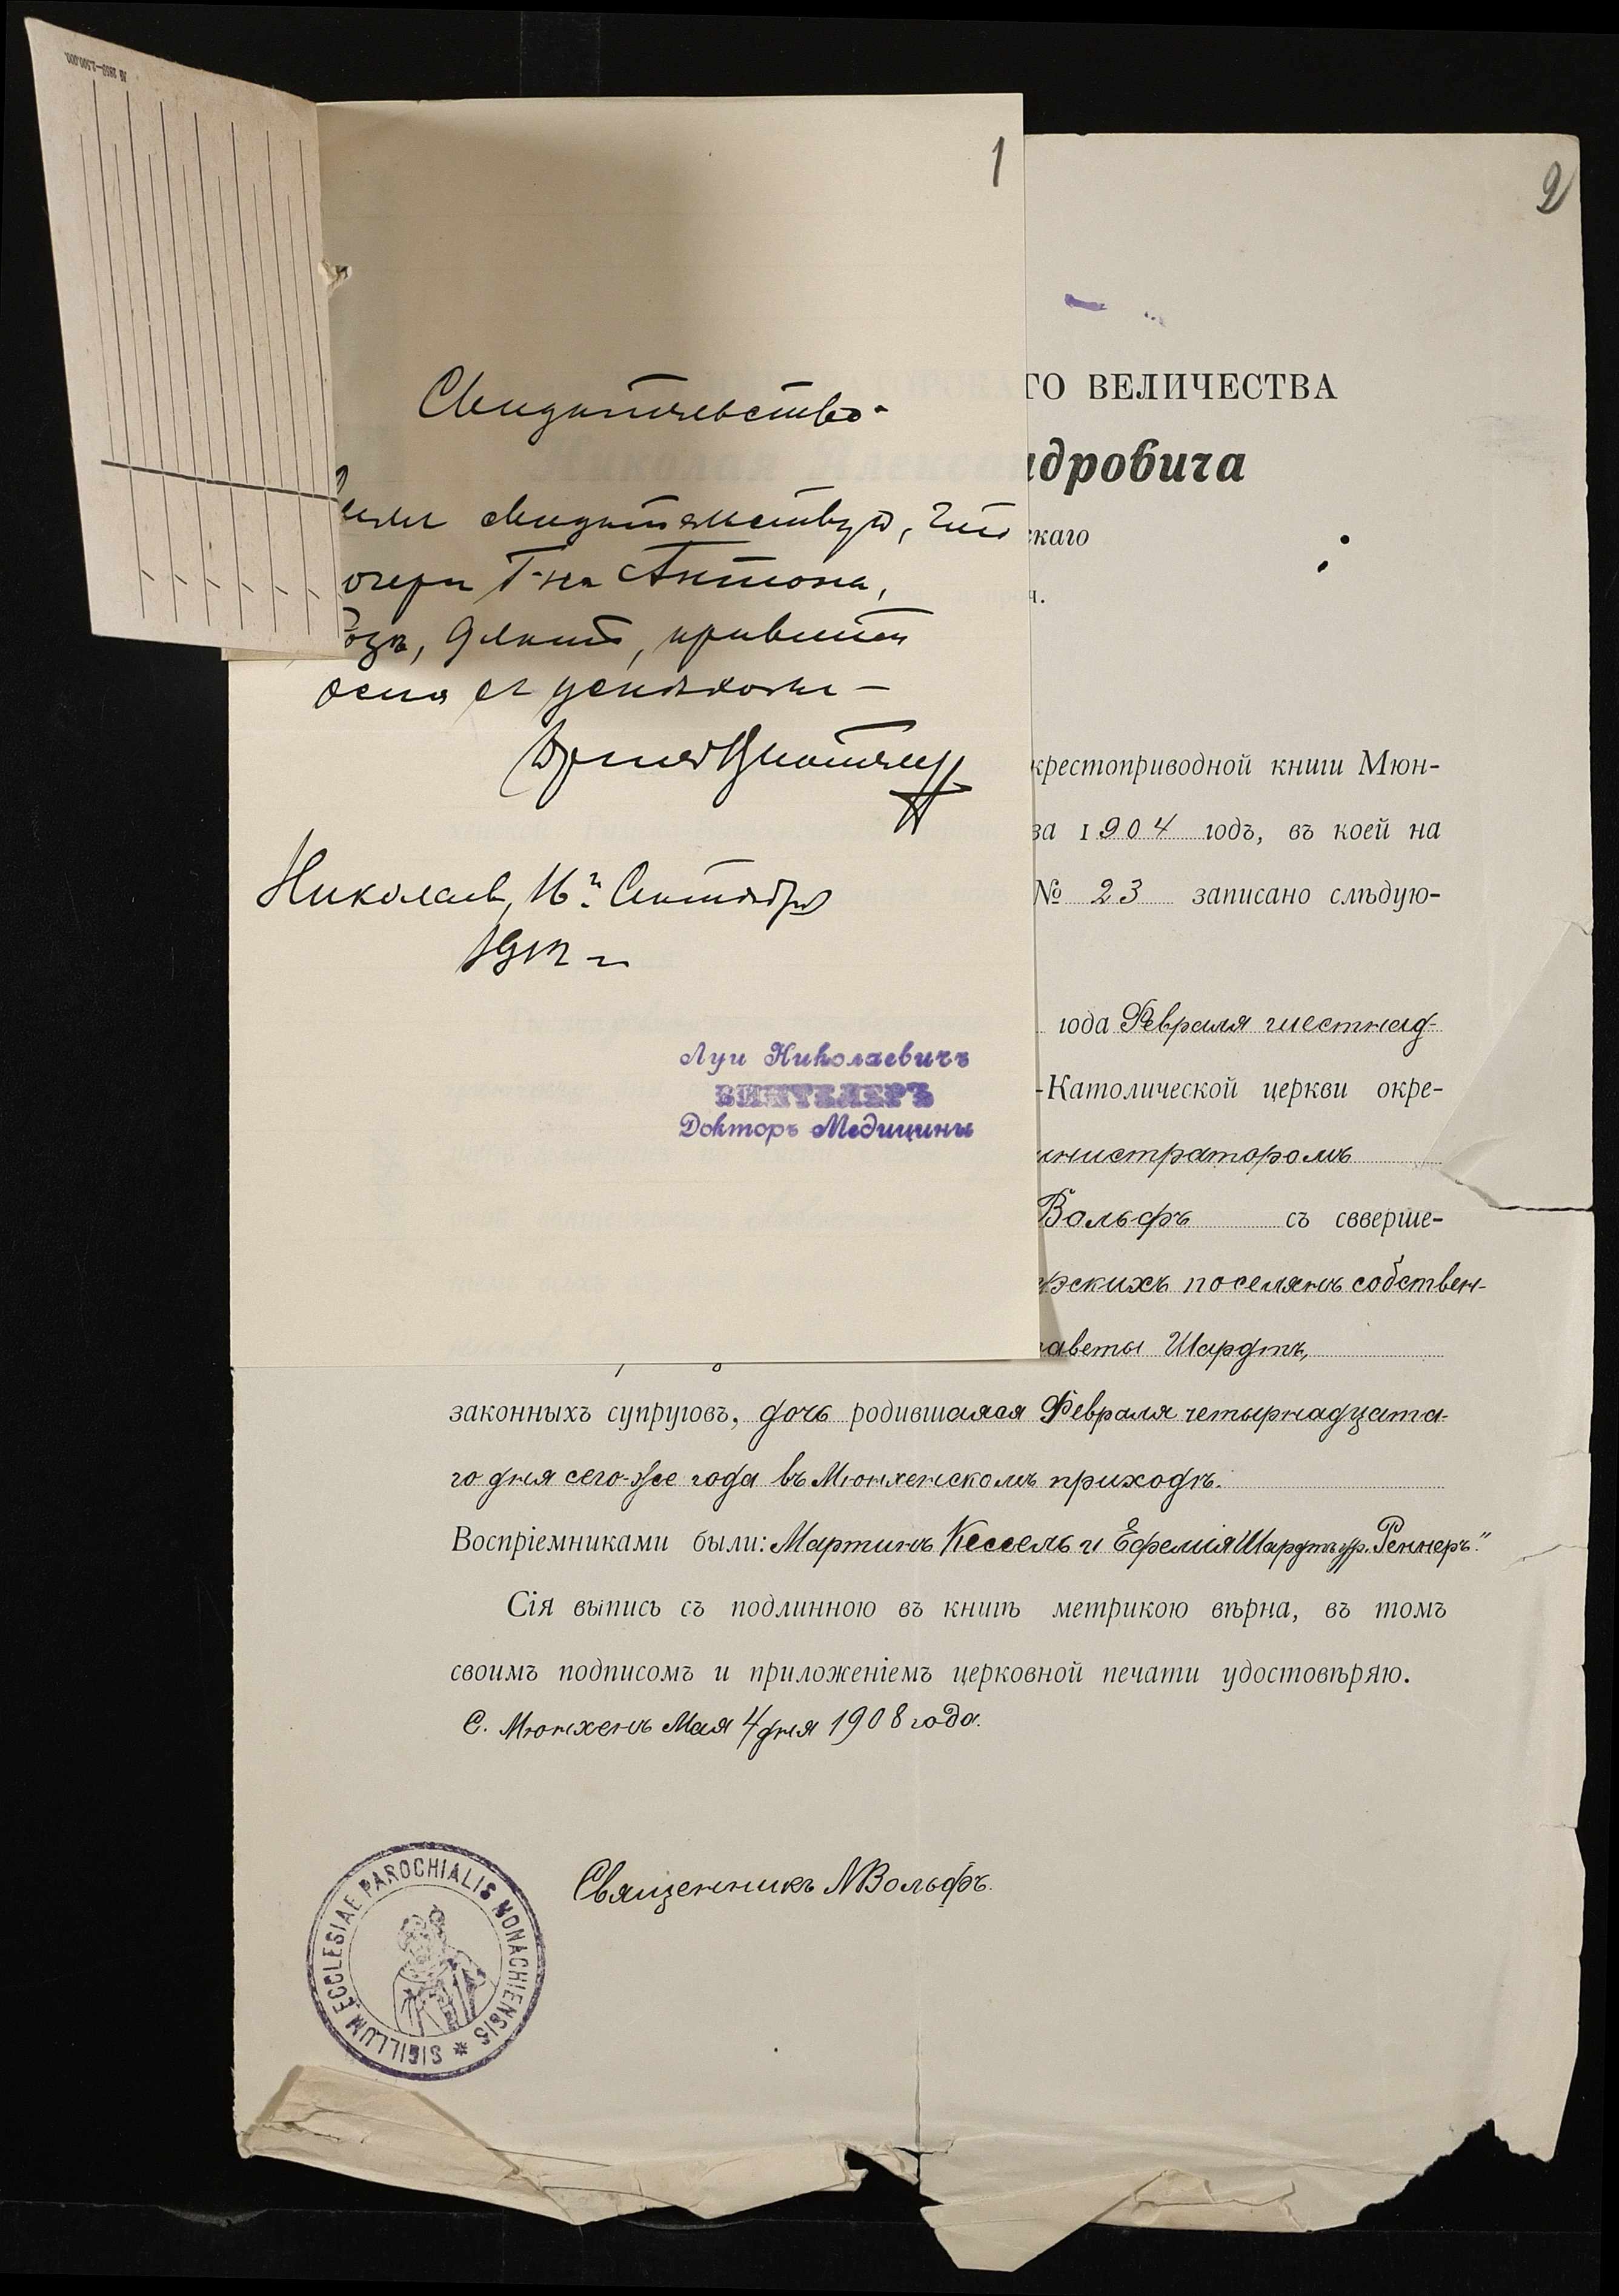 № 2865—2.500.000.
1
Свидѣтельство
свидѣтельствую, что
Г-на Антона,
9 лѣтъ, привита
оспа съ успѣхомъ —
Николаев, 16го Сентября
1912 г.
Луи Николаевичъ
ВИНТЕЛЕРЪ
Докторъ Медицины
2
ГО ВЕЛИЧЕСТВА
ндровича
скаго
крестоприводной книги Мюн-
за 1904 годъ, въ коей на
№ 23 записано слѣдую-
года Февраля шестнад-
-Католической церкви окре-
инистраторомъ
Вольфъ съ свверше-
рскихъ поселянъ собствен-
заветы Шардтъ,
законныхъ супруговъ, дочь родившаяся Февраля четырнадцата-
го дня сего-же года въ Мюнхенскомъ приходѣ.
Воспріемниками были: Мартинъ Кессель и Ефемія Шардтъ ур. Реннеръ."
Сія выпись съ подлинною въ книгѣ метрикою вѣрна, въ томъ
своимъ подписомъ и приложеніемъ церковной печати удостовѣряю.
С. Мюнхенъ Мая 4 дня 1908 года.
Священникъ NВольфъ.
SIGILLUM ECCLESIAE PAROCHIALIS MONACHIENSIS *